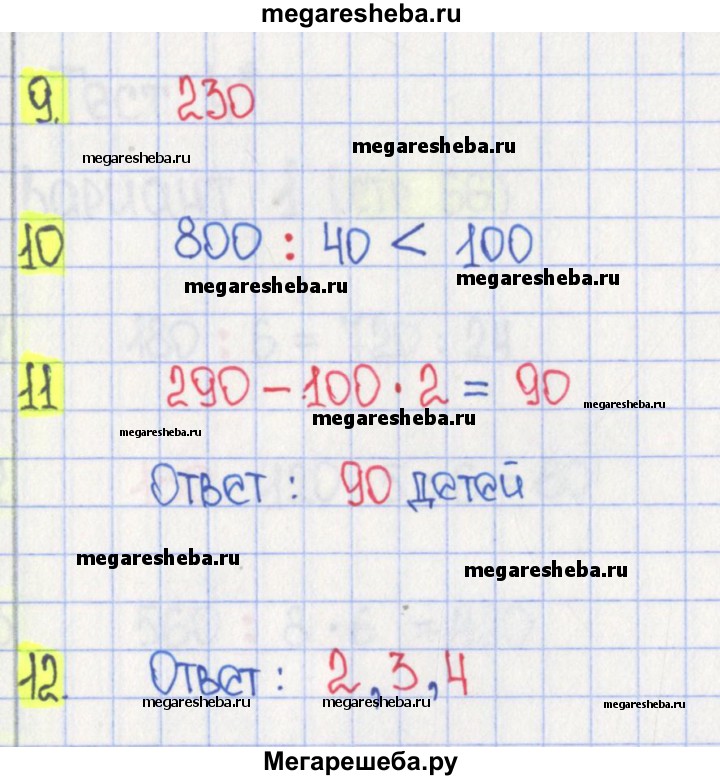 megaresheba.ru
9. 230
megaresheba.ru megaresheba.ru
10 800 : 40 < 100
megaresheba.ru megaresheba.ru
11 290 - 100 · 2 = 90
megaresheba.ru megaresheba.ru megaresheba.ru
Ответ : 90 детей
megaresheba.ru megaresheba.ru
12. Ответ : 2, 3, 4
megaresheba.ru megaresheba.ru megaresheba.ru
Мегарешеба.ру